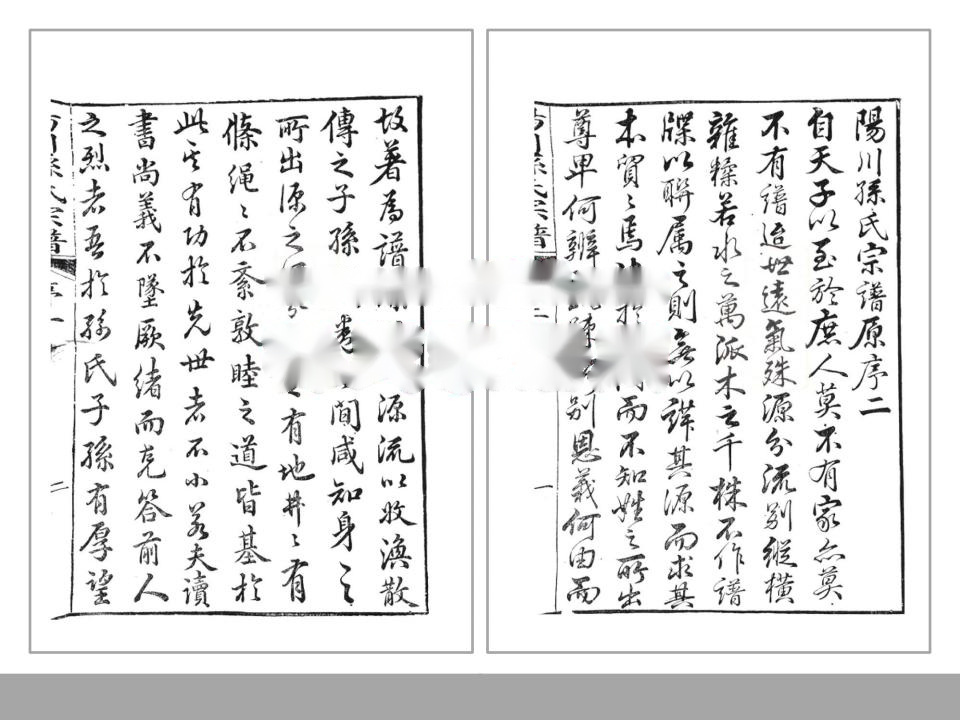 陽川孫氏宗譜原序二
自天子以至於庶人莫不有家亦莫
不有譜迨世遠氣殊源分流別縱橫
雜糅若水之萬派木之千株不作譜
牒以聯属之則無以詳其源而求其
本貿〻焉而不知姓之所出
尊卑何辨別恩義何由而
孫氏宗譜
一
故著為譜源流以收渙散
傳之子孫間咸知身之
所出源之有地井〻有
條繩〻不紊敦睦之道皆基於
此其有功於先世者不小若夫讀
書尚義不墜厥緒而克答前人
之烈者吾於孫氏子孫有厚望
孫氏宗譜
二